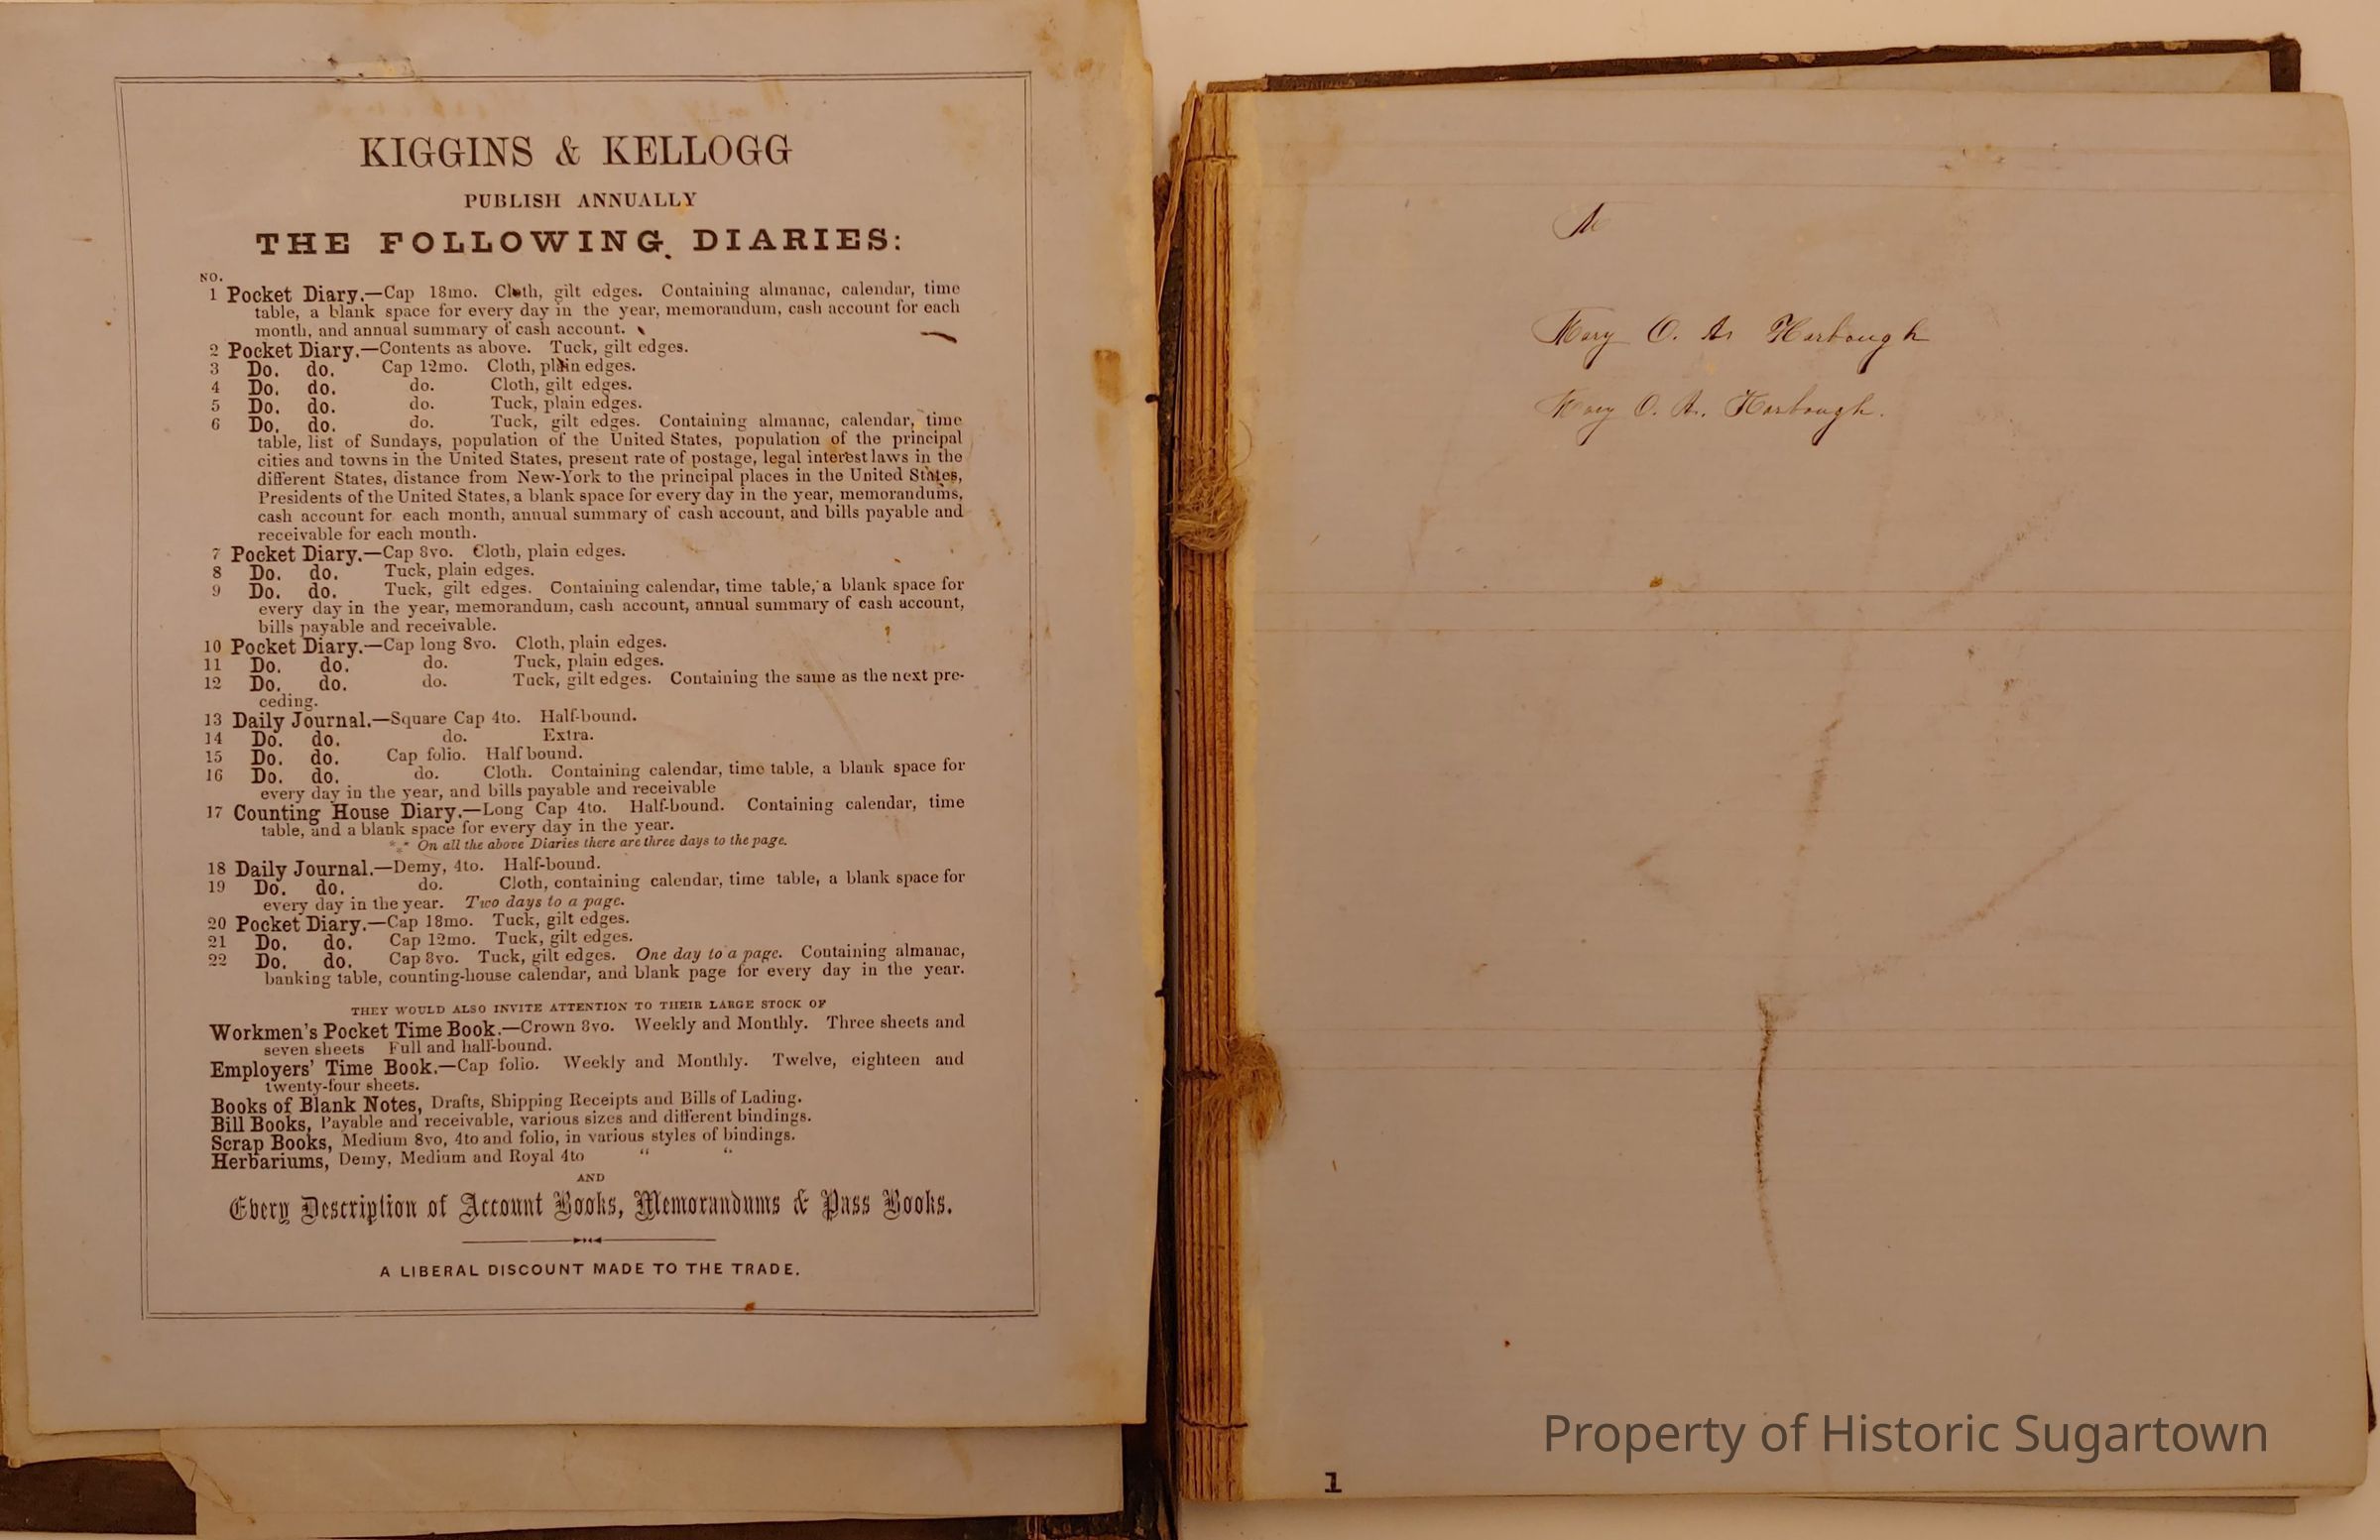 KIGGINS & KELLOGG
PUBLISH ANNUALLY
THE FOLLOWING DIARIES:
NO.
1 Pocket Diary.—Cap 18mo. Cloth, gilt edges. Containing almanac, calendar, time
table, a blank space for every day in the year, memorandum, cash account for each
month, and annual summary of cash account.
2 Pocket Diary.—Contents as above. Tuck, gilt edges.
3 Do. do. Cap 12mo. Cloth, plain edges.
4 Do. do. do. Cloth, gilt edges.
5 Do. do. do. Tuck, plain edges.
6 Do. do. do. Tuck, gilt edges. Containing almanac, calendar, time
table, list of Sundays, population of the United States, population of the principal
cities and towns in the United States, present rate of postage, legal interest laws in the
different States, distance from New-York to the principal places in the United States,
Presidents of the United States, a blank space for every day in the year, memorandums,
cash account for each month, annual summary of cash account, and bills payable and
receivable for each month.
7 Pocket Diary.—Cap 8vo. Cloth, plain edges.
8 Do. do. Tuck, plain edges.
9 Do. do. Tuck, gilt edges. Containing calendar, time table, a blank space for
every day in the year, memorandum, cash account, annual summary of cash account,
bills payable and receivable.
10 Pocket Diary.—Cap long 8vo. Cloth, plain edges.
11 Do. do. do. Tuck, plain edges.
12 Do. do. do. Tuck, gilt edges. Containing the same as the next pre-
ceding.
13 Daily Journal.—Square Cap 4to. Half-bound.
14 Do. do. do. Extra.
15 Do. do. Cap folio. Half bound.
16 Do. do. do. Cloth. Containing calendar, time table, a blank space for
every day in the year, and bills payable and receivable
17 Counting House Diary.—Long Cap 4to. Half-bound. Containing calendar, time
table, and a blank space for every day in the year.
*** On all the above Diaries there are three days to the page.
18 Daily Journal.—Demy, 4to. Half-bound.
19 Do. do. do. Cloth, containing calendar, time table, a blank space for
every day in the year. Two days to a page.
20 Pocket Diary.—Cap 18mo. Tuck, gilt edges.
21 Do. do. Cap 12mo. Tuck, gilt edges.
22 Do. do. Cap 8vo. Tuck, gilt edges. One day to a page. Containing almanac,
banking table, counting-house calendar, and blank page for every day in the year.
THEY WOULD ALSO INVITE ATTENTION TO THEIR LARGE STOCK OF
Workmen's Pocket Time Book.—Crown 8vo. Weekly and Monthly. Three sheets and
seven sheets Full and half-bound.
Employers' Time Book.—Cap folio. Weekly and Monthly. Twelve, eighteen and
twenty-four sheets.
Books of Blank Notes, Drafts, Shipping Receipts and Bills of Lading.
Bill Books, Payable and receivable, various sizes and different bindings.
Scrap Books, Medium 8vo, 4to and folio, in various styles of bindings.
Herbariums, Demy, Medium and Royal 4to " "
AND
Every Description of Account Books, Memorandums & Pass Books.
A LIBERAL DISCOUNT MADE TO THE TRADE.
Mary O. A. Harbaugh
Mary O. A. Harbaugh.
Property of Historic Sugartown
1